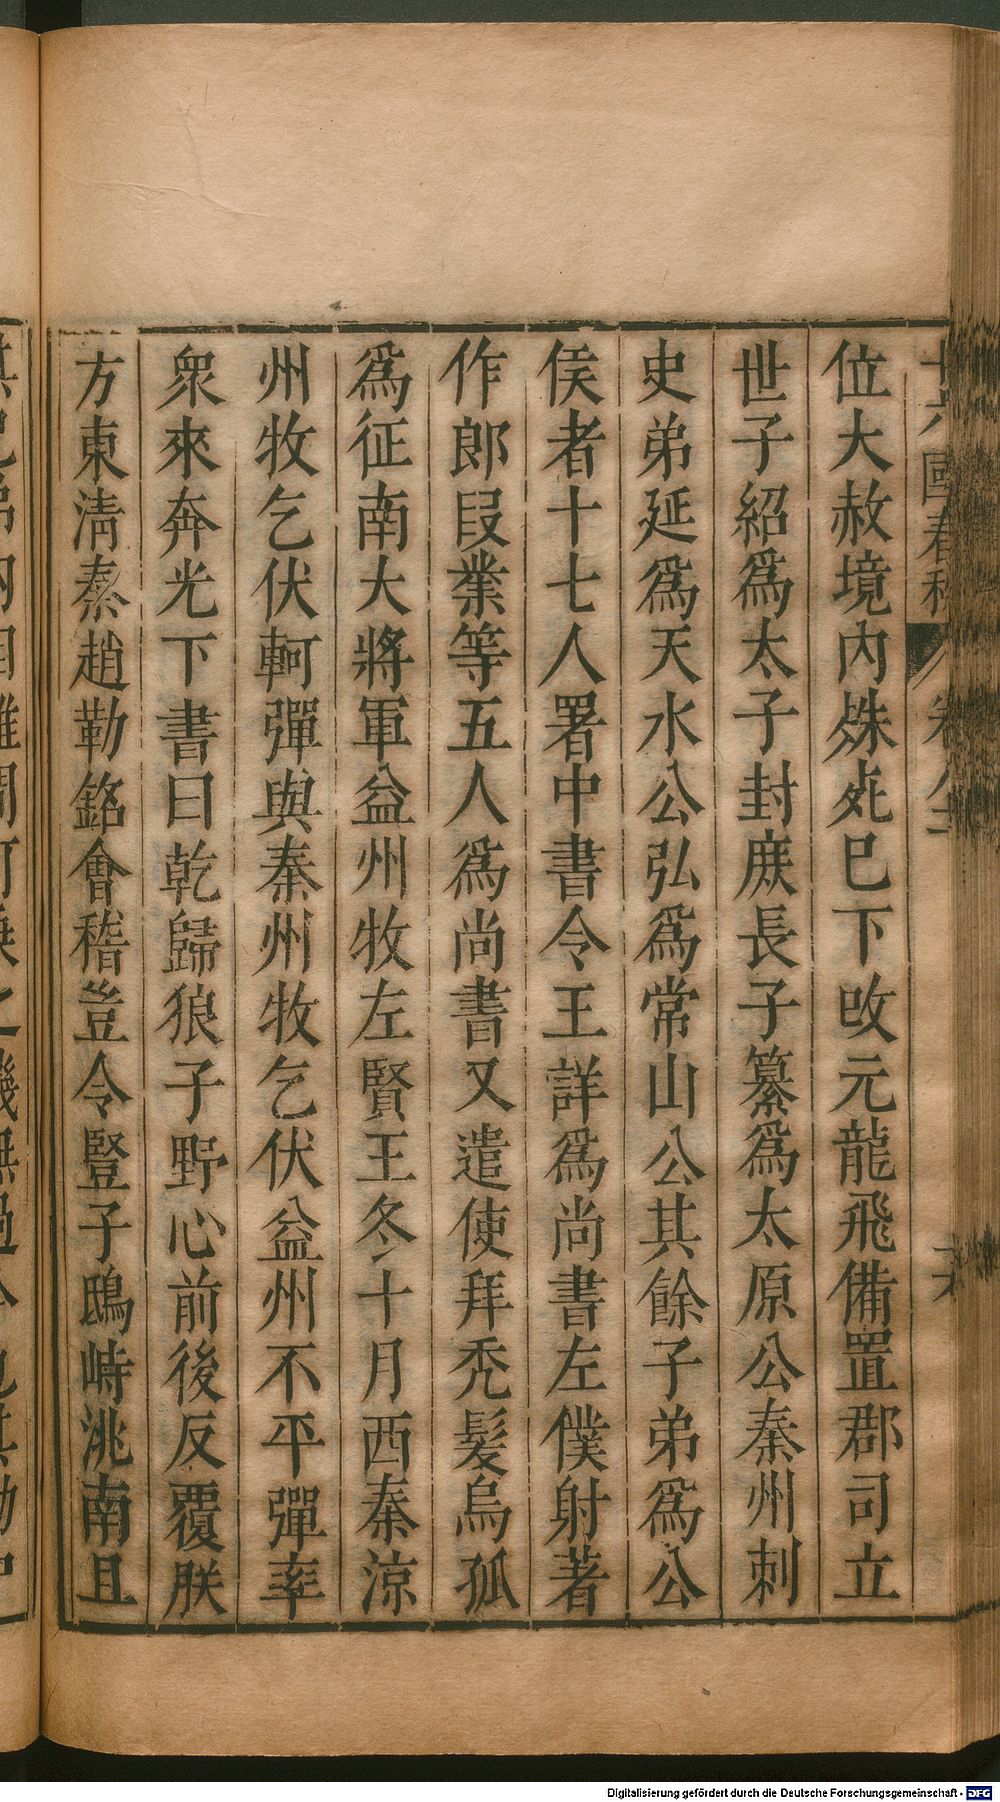 十六國春秋 卷八十
位大赦境内殊𣦸巳下改元龍飛備置郡司立
世子紹爲太子封庶長子纂爲太原公秦州刺
史弟延爲天水公弘爲常山公其餘子弟爲公
侯者十七人署中書令王詳爲尚書左僕射著
作郎段業等五人爲尚書又遣使拜秃髮烏孤
爲征南大將軍益州牧左賢王冬十月西秦涼
州牧乞伏軻彈與秦州牧乞伏益州不平彈率
衆來奔光下書曰乾歸狼子野心前後反覆朕
方東清秦趙勒銘會稽豈令豎子鴟峙洮南且
Digitalisierung gefördert durch die Deutsche Forschungsgemeinschaft - DFG